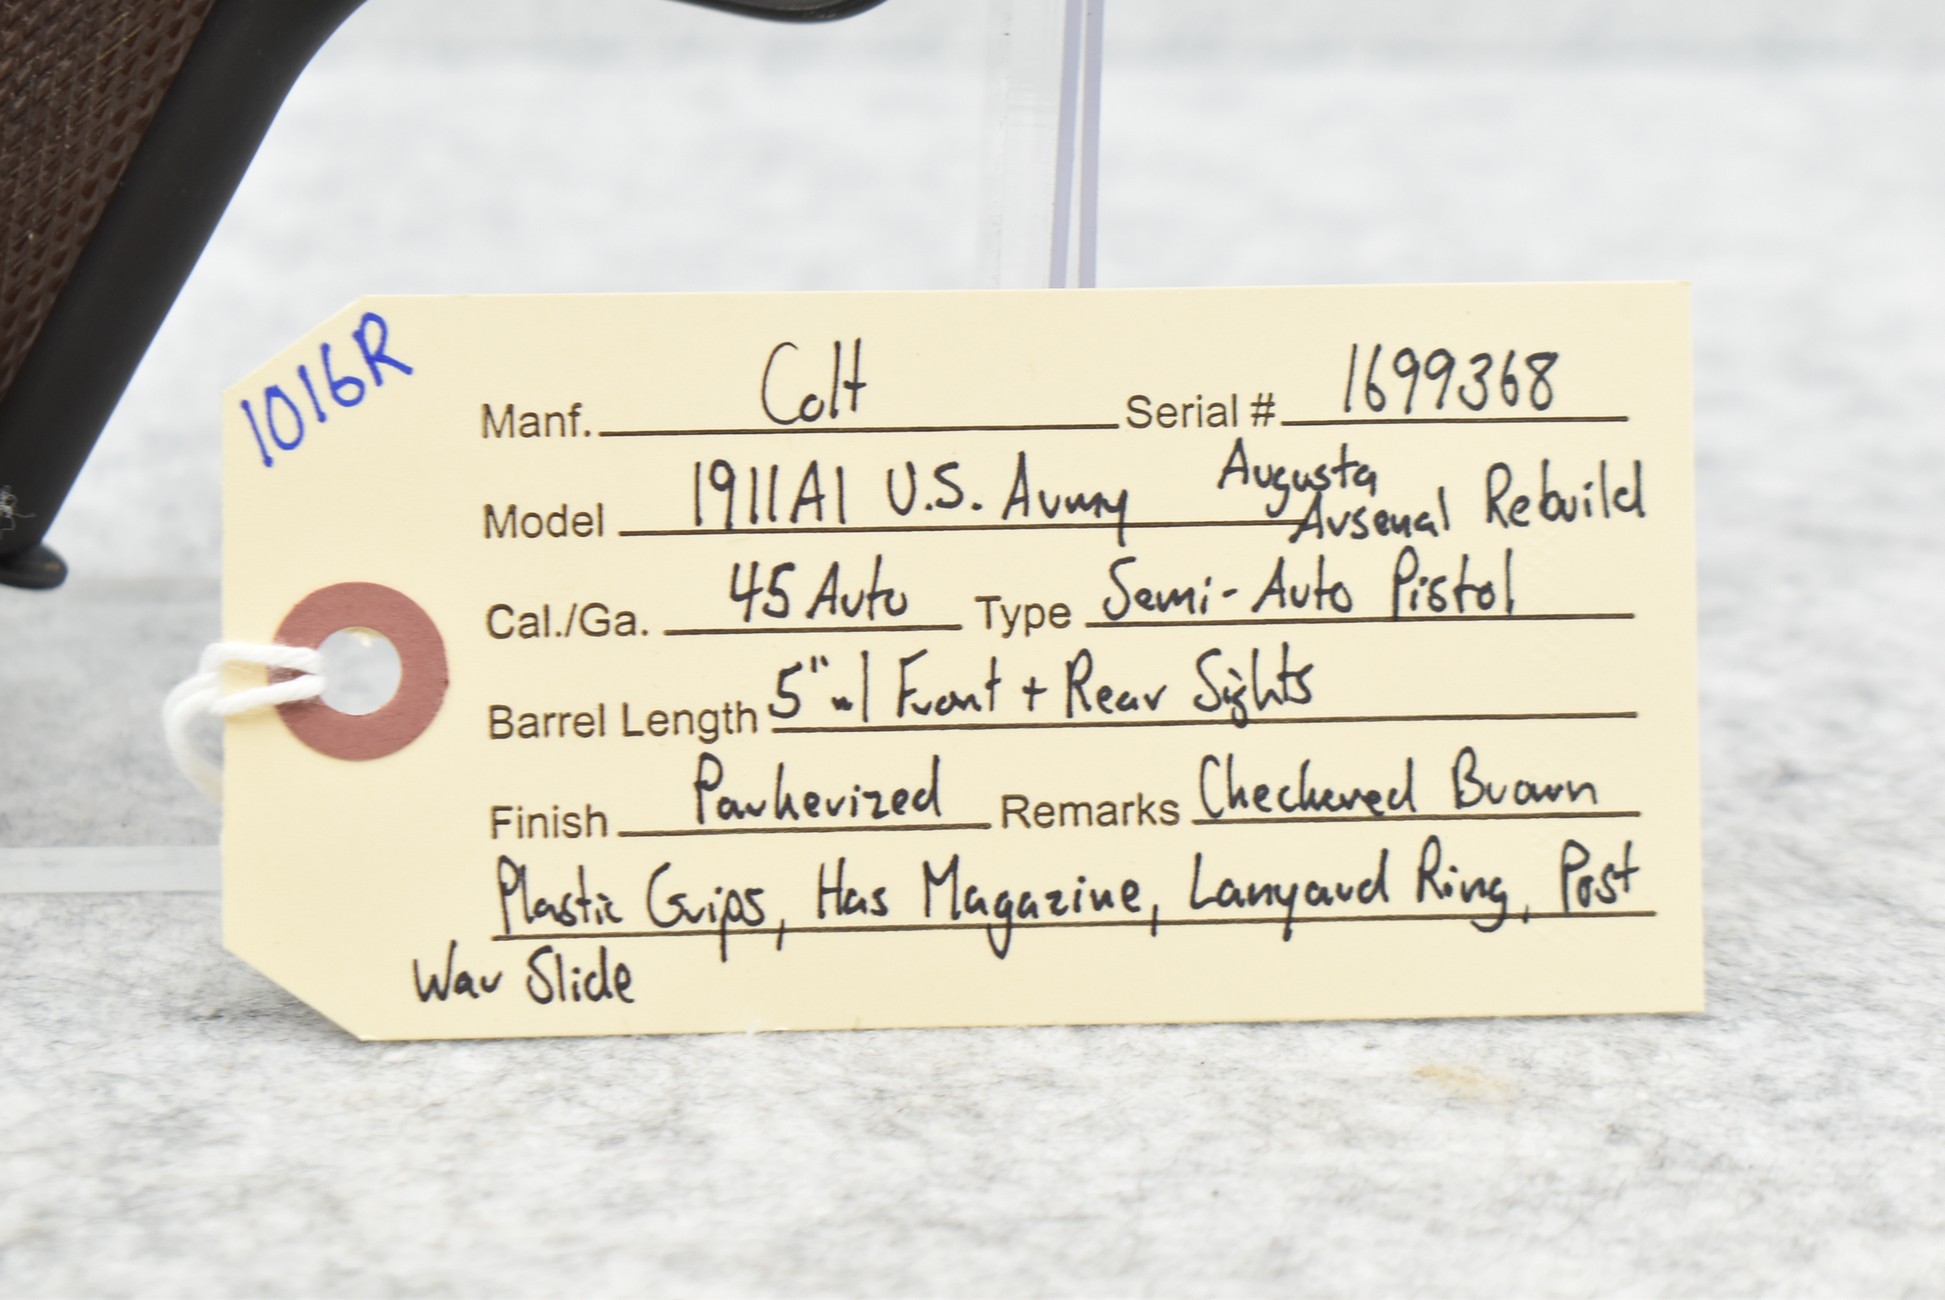 1016R
Manf. Colt Serial # 1699368
Model 1911A1 U.S. Army Augusta Arsenal Rebuild
Cal./Ga. 45 Auto Type Semi-Auto Pistol
Barrel Length 5" w/ Front + Rear Sights
Finish Parkerized Remarks Checkered Brown
Plastic Grips, Has Magazine, Lanyard Ring, Post
War Slide